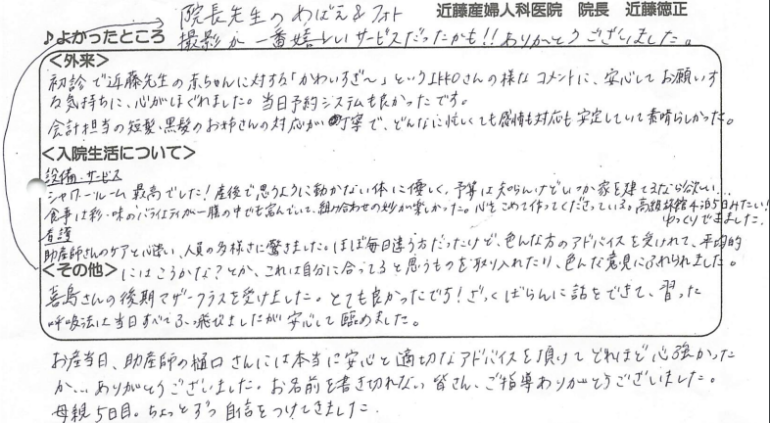 院長先生のめばえ&フォト
近藤産婦人科医院 院長 近藤徳正
♪よかったところ
撮影が一番嬉しいサービスだったかも!!ありがとうございました。
<外来>
初診で近藤先生の赤ちゃんに対する「かわいすぎ〜」というIKKOさんの様なコメントに、安心してお願いす
る気持ちに、心がほぐれました。当日予約システムも良かったです。
会計担当の短髪、黒髪のお姉さんの対応が丁寧で、どんなに忙しくても感情も対応も安定していて素晴らしかった。
<入院生活について>
設備・サービス
シャワールーム最高でした!産後で思うように動かない体に優しく、予算は知らんけどいつか家を建てるなら欲しい…
食事は彩・味のバライエティが一膳の中でも富んでいて、組み合わせの妙が楽しかった。心をこめて作ってくださっている。高級旅館4泊5日みたい!
ゆっくりできました。
看護
助産師さんのケアと心遣い、人員の多様さに驚きました。ほぼ毎日違う方だったけど、色んな方のアドバイスを受けれて、平均的
<その他>
にはこうかな?とか、これは自分に合ってると思うものを取り入れたり、色んな意見にふれられました。
喜島さんの後期マザークラスを受けました。とても良かったです!ざっくばらんに話をできて、習った
呼吸法は当日すべてふっ飛びましたが安心して臨めました。
お産当日、助産師の樋口さんには本当に安心と適切なアドバイスを頂けてどれほど心強かった
か…ありがとうございました。お名前を書き切れない皆さん、ご指導ありがとうございました。
母親5日目。ちょっとずつ自信をつけてきました。